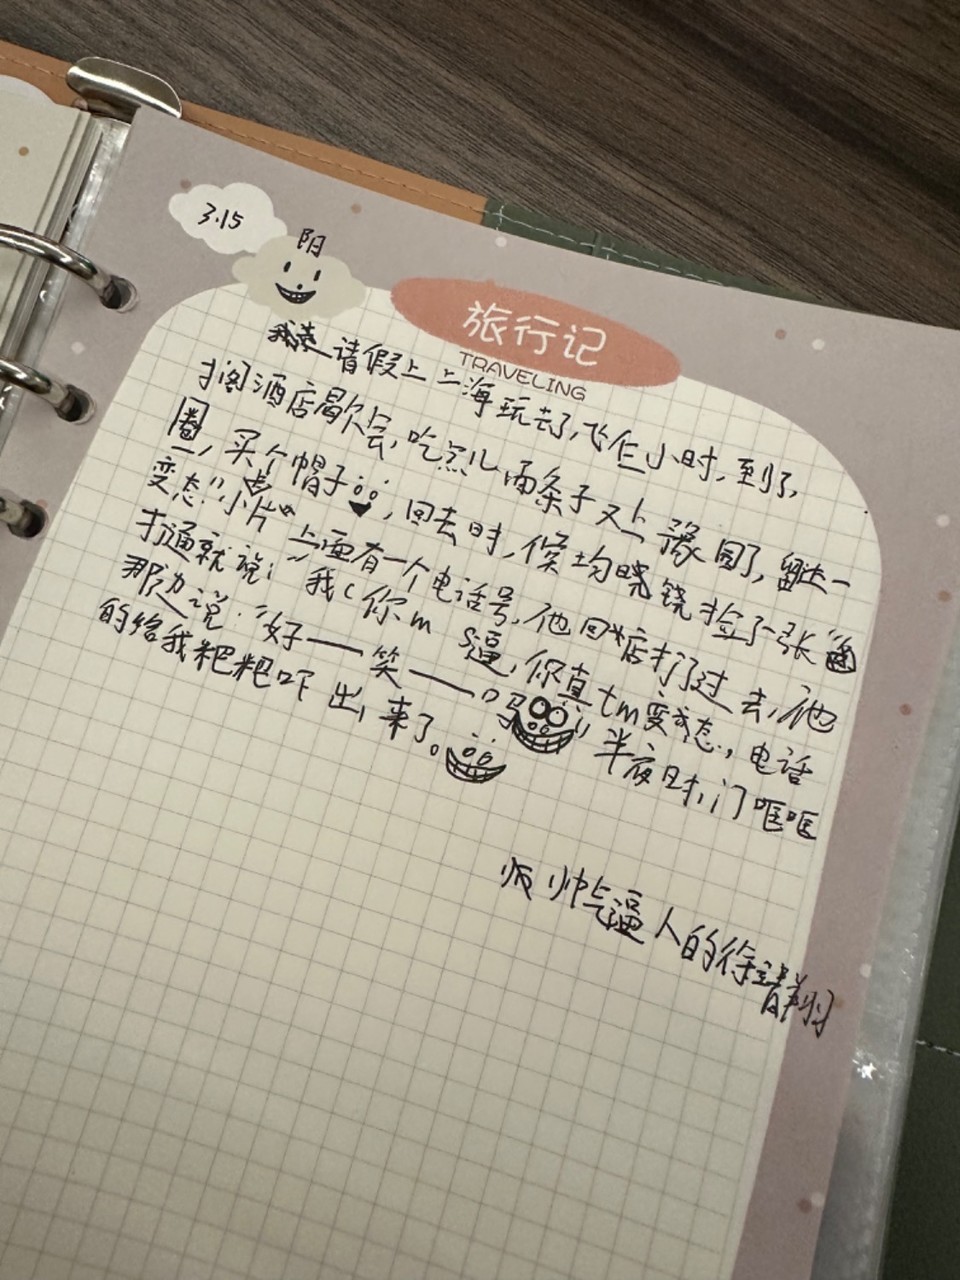 3.15
阳
旅行记
TRAVELING
请假上上海玩去了,飞仨小时,到了,
找阁酒店歇会,吃点儿面条子又上豫园了,一
圈,买个帽子,回去时,侯均晓饶捡了张
变态"小卡片"上面有一个电话号,他回店打了过去,他
打通就说:我c你m s逼,你真tm变态,电话
那边说:"好——笑——吗"半夜时,门哐哐
的给我粑粑吓出来了。
帅气逼人的徐